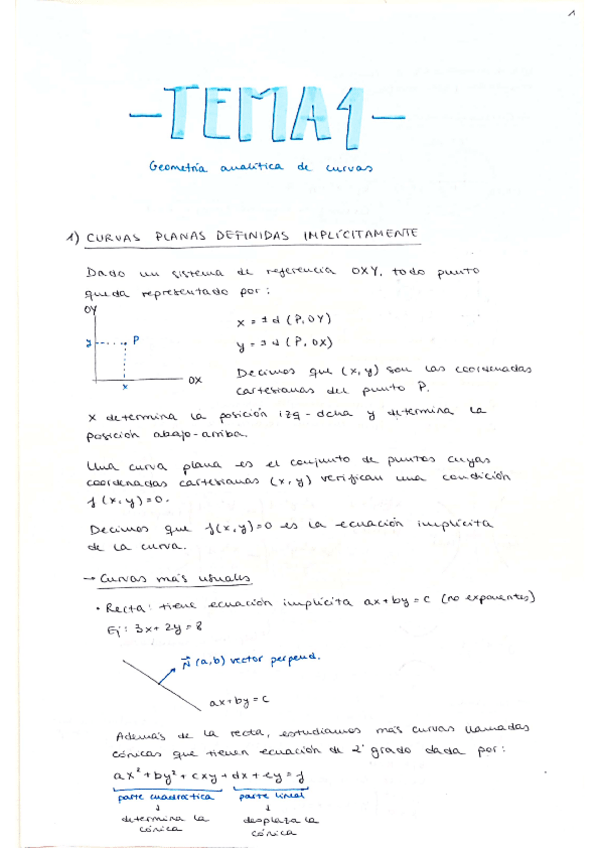 1
-TEMA1-
Geometría analítica de curvas
1) CURVAS PLANAS DEFINIDAS IMPLÍCITAMENTE
Dado un sistema de referencia OXY, todo punto
queda representado por:
OY
y
P
x
OX
x = ± d (P, OY)
y = ± d (P, OX)
Decimos que (x, y) son las coordenadas
cartesianas del punto P.
x determina la posición izq-dcha y determina la
posición abajo-arriba.
Una curva plana es el conjunto de puntos cuyas
coordenadas cartesianas (x, y) verifican una condición
f (x, y) = 0.
Decimos que f(x, y) = 0 es la ecuación implícita
de la curva.
→ Curvas más usuales
• Recta: tiene ecuación implícita ax + by = c (no exponentes)
Ej: 3x + 2y = 8
N (a, b) vector perpend.
ax + by = c
Además de la recta, estudiamos más curvas llamadas
cónicas que tienen ecuación de 2º grado dada por:
ax² + by² + cxy + dx + ey = f
parte cuadrática parte lineal
↓ ↓
determina la desplaza la
cónica cónica